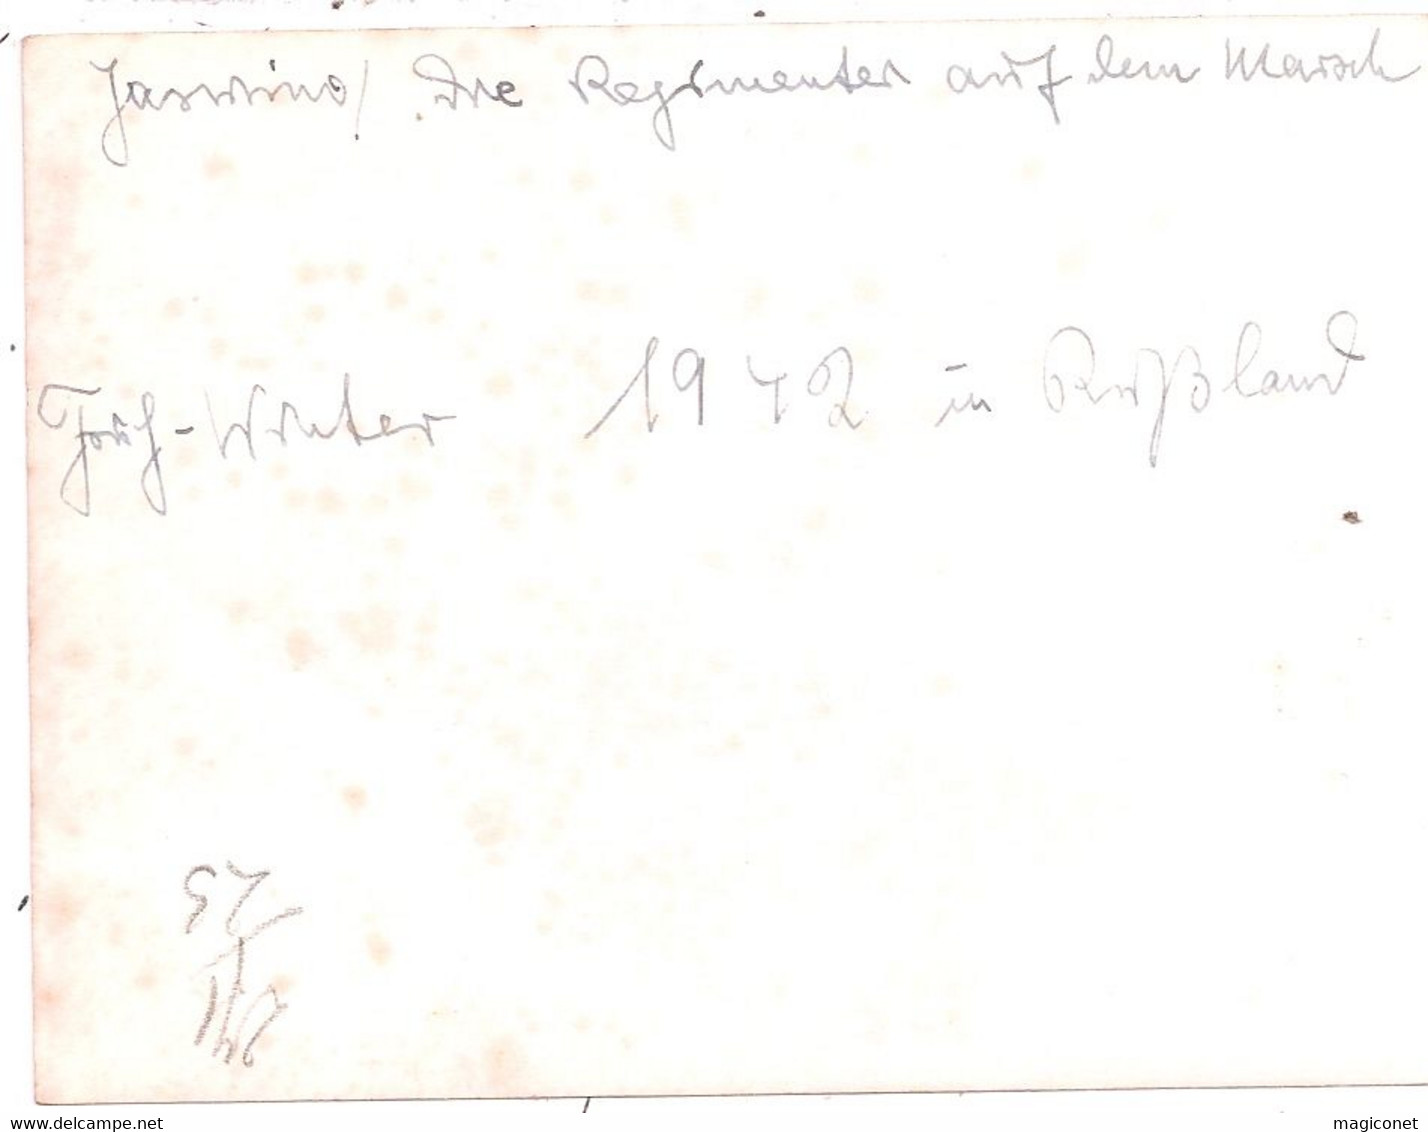 Jaswino / Die Regimenter auf dem Marsch
Früh-Winter 1942 in Rußland
www.delcampe.net
magiconet